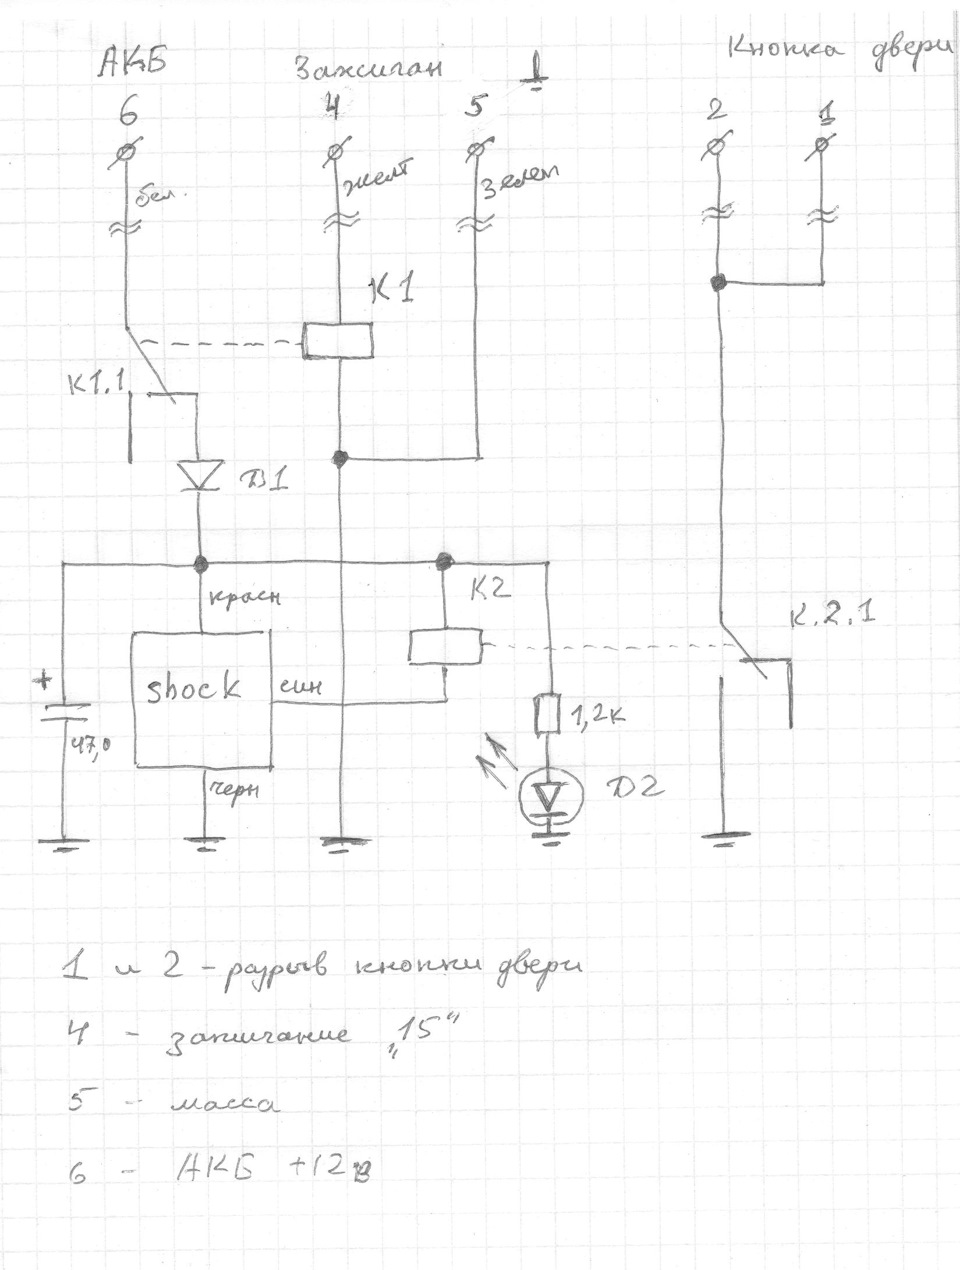 АКБ Зажиган Кнопка двери
6 4 5 2 1
бел. желт зелен
K1
K1.1
D1
K2
красн
K.2.1
+ shock син
1,2к
47,0
черн D2
1 и 2 - разрыв кнопки двери
4 - зажигание „15“
5 - масса
6 - АКБ +12в